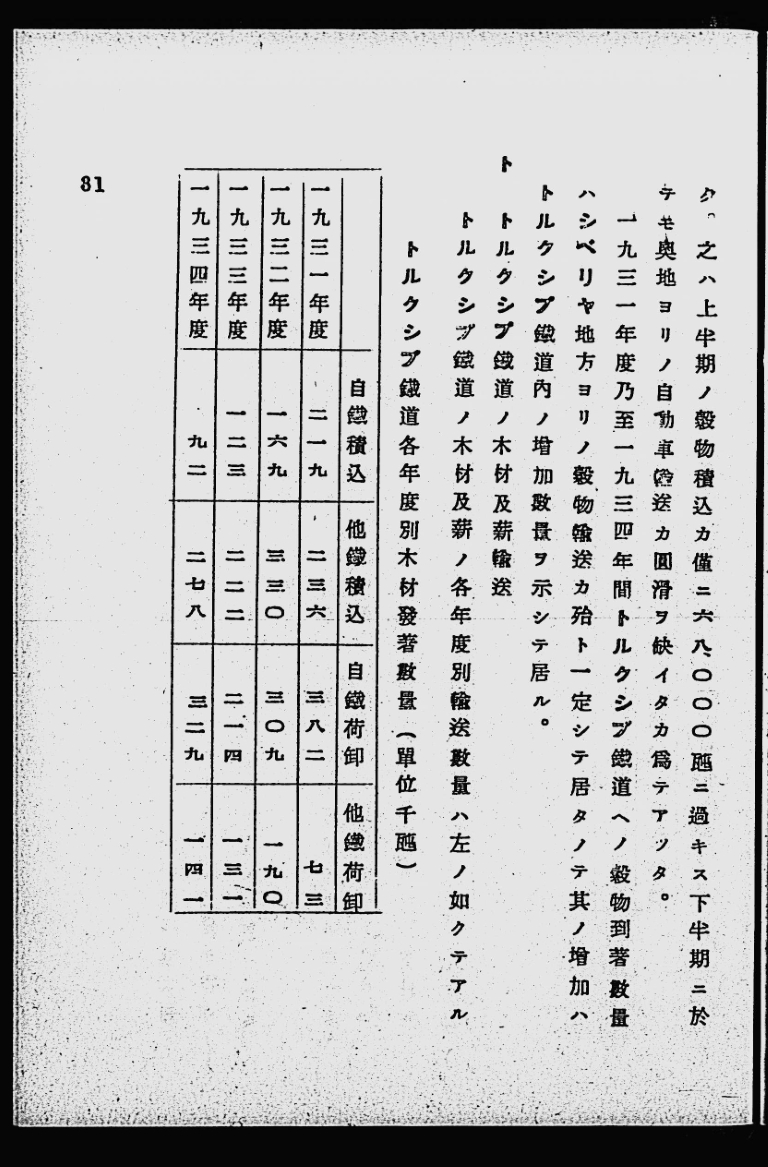 ク。之ハ上半期ノ穀物積込カ僅ニ六八、〇〇〇瓲ニ過キス下半期ニ於
テモ奥地ヨリノ自動車輸送カ圓滑ヲ缺イタカ爲テアツタ。
一九三一年度乃至一九三四年間トルクシブ鐵道ヘノ穀物到著數量
ハシベリヤ地方ヨリノ穀物輸送カ殆ト一定シテ居タノテ其ノ增加ハ
トルクシブ鐵道內ノ增加數量ヲ示シテ居ル。
ト トルクシブ鐵道ノ木材及薪輸送
トルクシブ鐵道ノ木材及薪ノ各年度別輸送數量ハ左ノ如クテアル
トルクシブ鐵道各年度別木材發著數量(單位千瓲)
自鐵積込 他鐵積込 自鐵荷卸 他鐵荷卸
一九三一年度 二一九 二三六 三八二 七三
一九三二年度 一六九 三三〇 三〇九 一九〇
一九三三年度 一二三 二二二 二一四 一三一
一九三四年度 九二 二七八 三二九 一四一
81